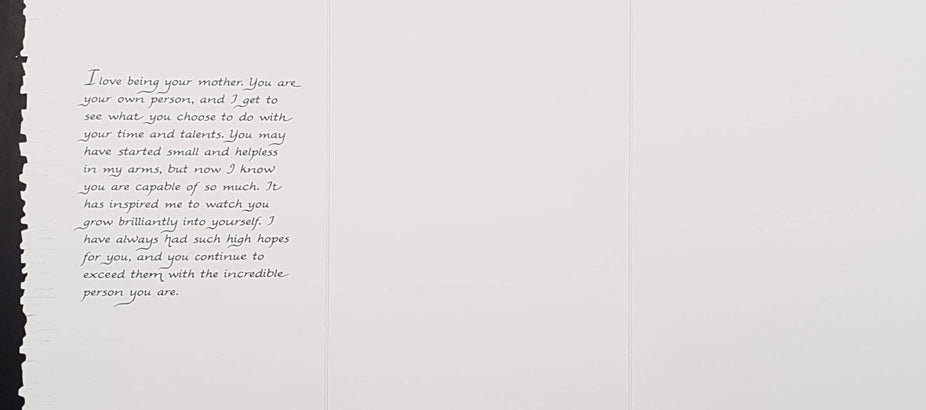 I love being your mother. You are
your own person, and I get to
see what you choose to do with
your time and talents. You may
have started small and helpless
in my arms, but now I know
you are capable of so much. It
has inspired me to watch you
grow brilliantly into yourself. I
have always had such high hopes
for you, and you continue to
exceed them with the incredible
person you are.